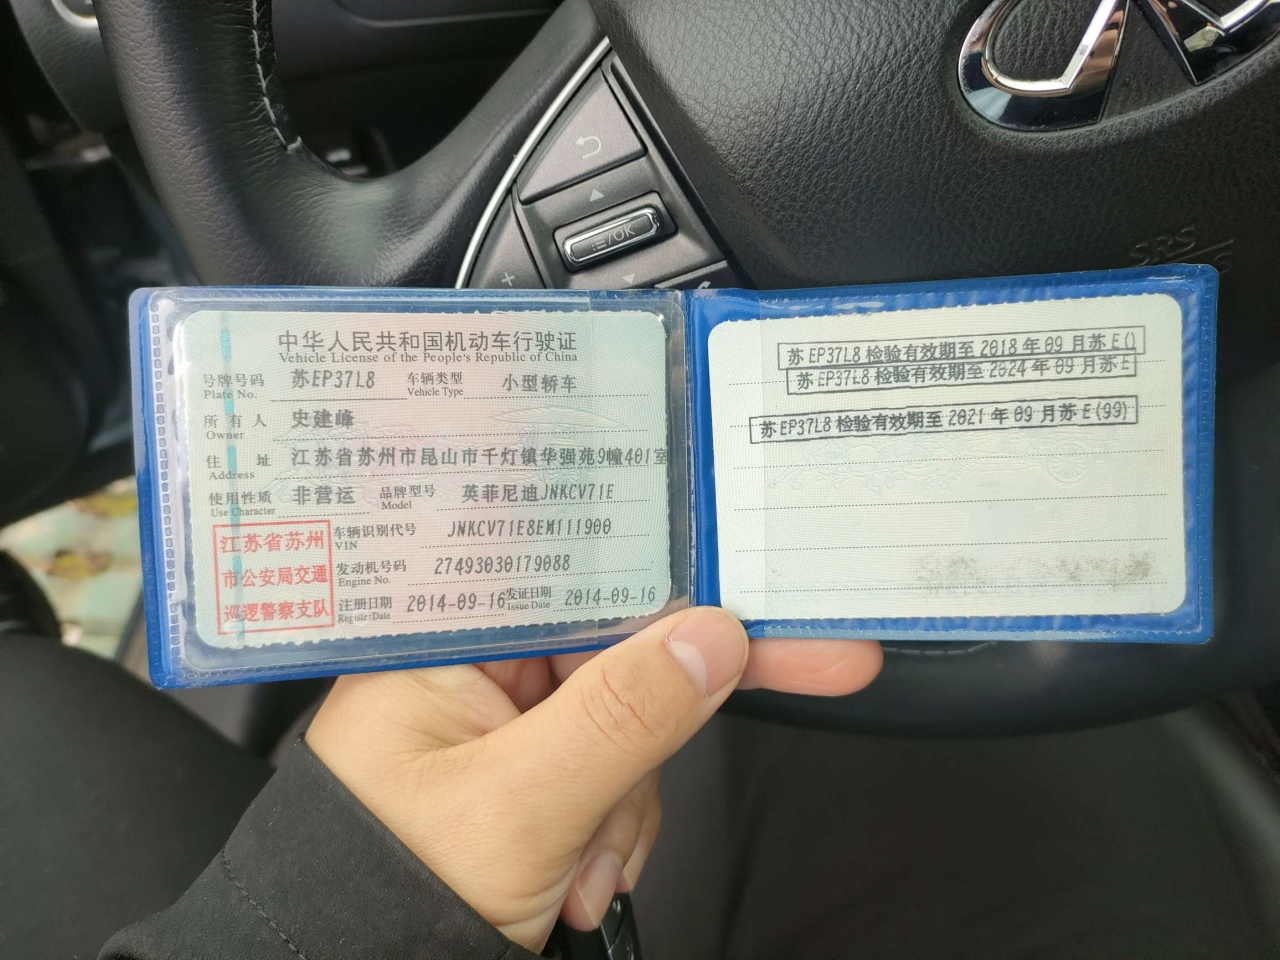 中华人民共和国机动车行驶证
Vehicle License of the People's Republic of China
号牌号码 苏EP37L8 车辆类型 小型轿车
Plate No. Vehicle Type
所有人 史建峰
Owner
住址 江苏省苏州市昆山市千灯镇华强苑9幢401室
Address
使用性质 非营运 品牌型号 英菲尼迪JNKCV71E
Use Character Model
江苏省苏州
市公安局交通
巡逻警察支队
车辆识别代号 JNKCV71E8EM111900
VIN
发动机号码 27493030179088
Engine No.
注册日期 2014-09-16 发证日期 2014-09-16
Register Date Issue Date
苏EP37L8检验有效期至2018年09月苏E()
苏EP37L8检验有效期至2024年09月苏E
苏EP37L8检验有效期至2021年09月苏E(99)
/OK
+
SRS